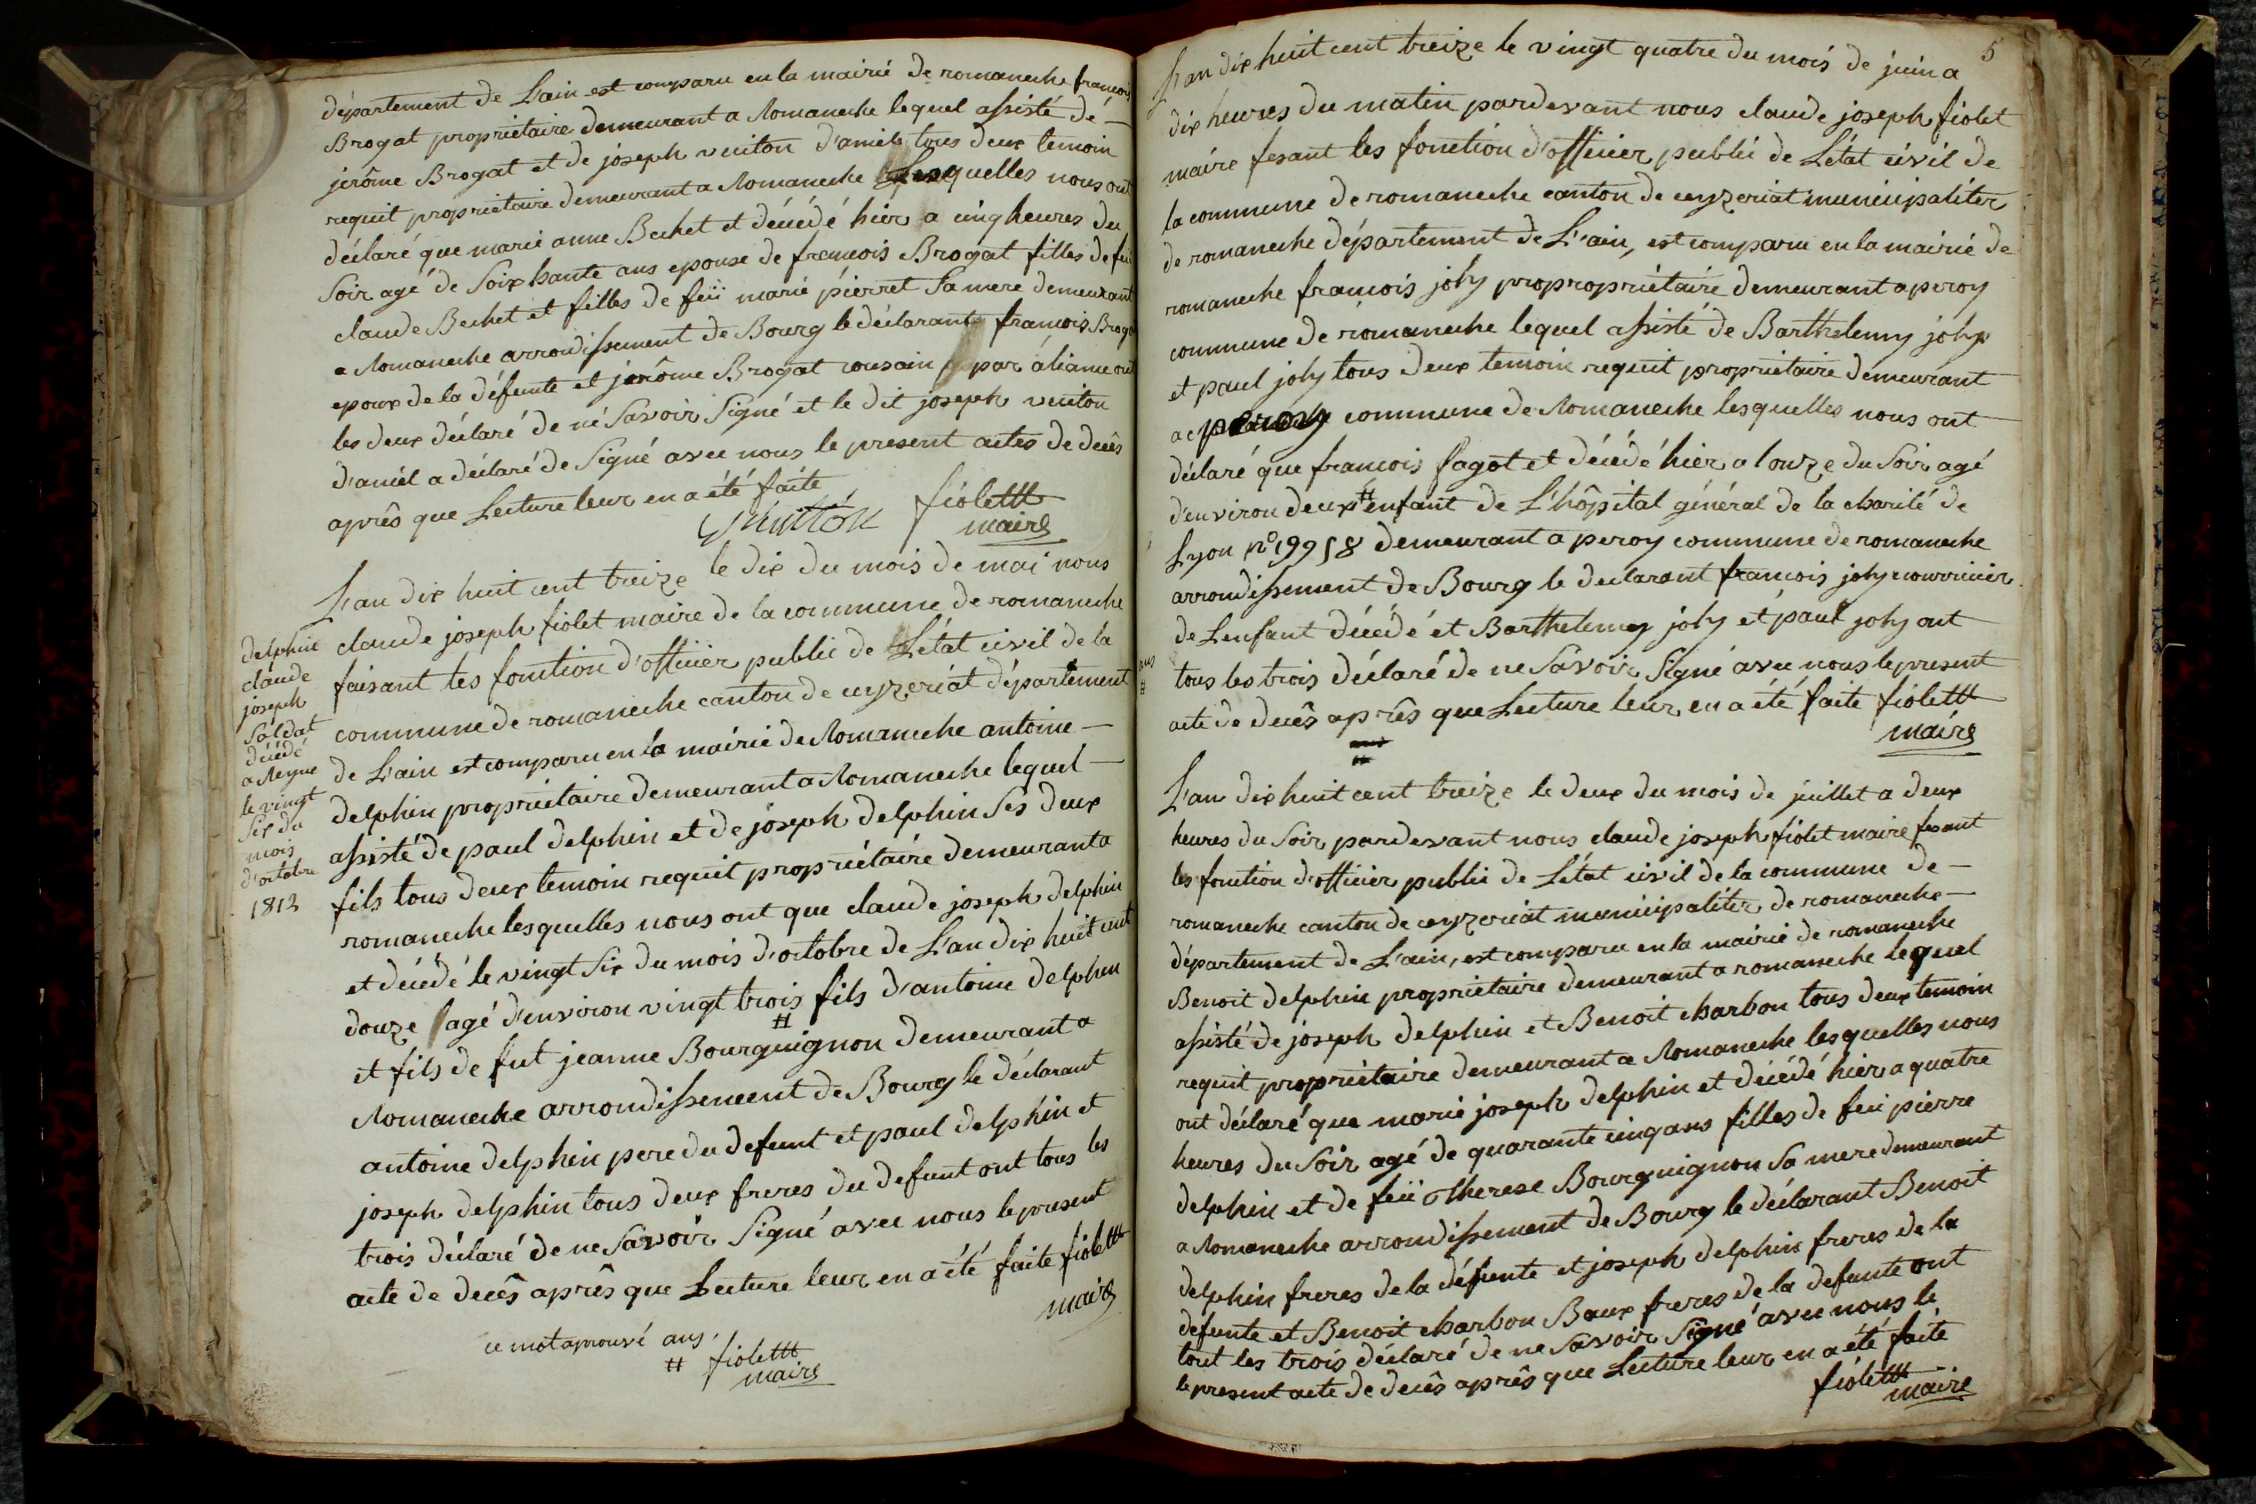 département de L'ain est comparu en la mairié de romaneche francois
Brogat propriétaire demeurant a Romaneche lequel assisté de
jerôme Brogat et de joseph vuiton d'amiel tous deux temoin
requit propriétaire demeurant a Romaneche lesquelles nous ont
déclaré que marie anne Bechet et décédé hier a cinq heures du
Soir agé de Soixhante ans epouse de francois Brogat filles de feu
claude Bechet et filles de feü marie pierret Sa mere demeurant
a Romaneche arrondissement de Bourg le déclarant francois Brogat
epoux de la défunte et jerôme Brogat cousain par áliance ont
les deux déclaré de né Savoir Signé et le dit joseph vuiton
d'amiél a déclaré de Signé avec nous le present actes de decês
aprês que Lecture leur en a été faite
vuiton fiolet
maire
L'an dix huit cent treize le dix du mois de mai nous
claude joseph fiolet maire de la commune de romaneche
faisant les fonction d'officier public de L'état civil de la
commune de romaneche canton de ceyzeriat département
de L'ain est comparu en la mairie de Romaneche antoine
delphin propriétaire demeurant a Romaneche lequel
assisté de paul delphin et de joseph delphin Ses deux
fils tous deux temoin requit propriétaire demeurant a
romaneche lesquelles nous ont que claude joseph delphin
et décédé le vingt Six du mois d'octobre de L'an dix huit cent
douze agé d'environ vingt trois fils d'antoine delphin
#
et fils de fut jeanne Bourguignon demeurant a
Romaneche arrondissement de Bourg le déclarant
antoine delphin pere du defunt et paul delphin et
joseph delphin tous deux freres du defunt ont tous les
trois déclaré de ne Savoir Signé avec nous le present
acte de decês aprês que Lecture leur en a été faite fiolet
maire
ce mot aprouvé ans.
# fiolet
maire
delphin
claude
joseph
Soldat
décédé
le vingt
Six du
mois
d'octobre
1812
5
L'an dix huit cent treize le vingt quatre du mois de juin a
dix heures du matin pardevant nous claude joseph fiolet
maire fesant les fonction d'officier public de L'état civil de
la commune de romaneche canton de ceyzeriat municipaliter
de romaneche département de L'ain, est comparu en la mairie de
romaneche francois joly propropriétaire demeurant a peroy
commune de romaneche lequel assisté de Barthelemy joly
et paul joly tous deux temoin requit propriétaire demeurant
a peroy commune de Romaneche lesquelles nous ont
déclaré que francois fagot et décédé hier a l'onze du Soir agé
d'environ deux # enfant de L'hôpital général de la charité de
Lyon no 19958 demeurant a peroy commune de romaneche
arrondissement de Bourg le declarant francois joly nourricier
de L'enfant décédé et Barthelemy joly et paul joly ont
ans
#
tous les trois déclaré de ne Savoir Signé avec nous le present
acte de decês aprês que Lecture leur en a été faite fiolet
maire
L'an dix huit cent treize le deux du mois de juillet a deux
heures du Soir pardevant nous claude joseph fiolet maire fesant
les fonction d'officier public de L'état civil de la commune de
romaneche canton de ceyzeriat municipaliter de romaneche
département de L'ain, est comparu en la mairie de romaneche
Benoit delphin propriétaire demeurant a romaneche lequel
assisté de joseph delphin et Benoit charbon tous deux temoin
requit propriétaire demeurant a Romaneche lesquelles nous
ont déclaré que marie joseph delphin et décédé hier a quatre
heures du Soir agé de quarante cinq ans filles de feu pierre
delphin et de feü therese Bourguignon Sa mere demeurant
a Romaneche arrondissement de Bourg le déclarant Benoit
delphin freres de la défunte et joseph delphin freres de la
défunte et Benoit charbon Baux freres de la defunte ont
tout les trois déclaré de ne Savoir Signé avec nous le
le present acte de decês aprês que Lecture leur en a été faite
fiolet
maire